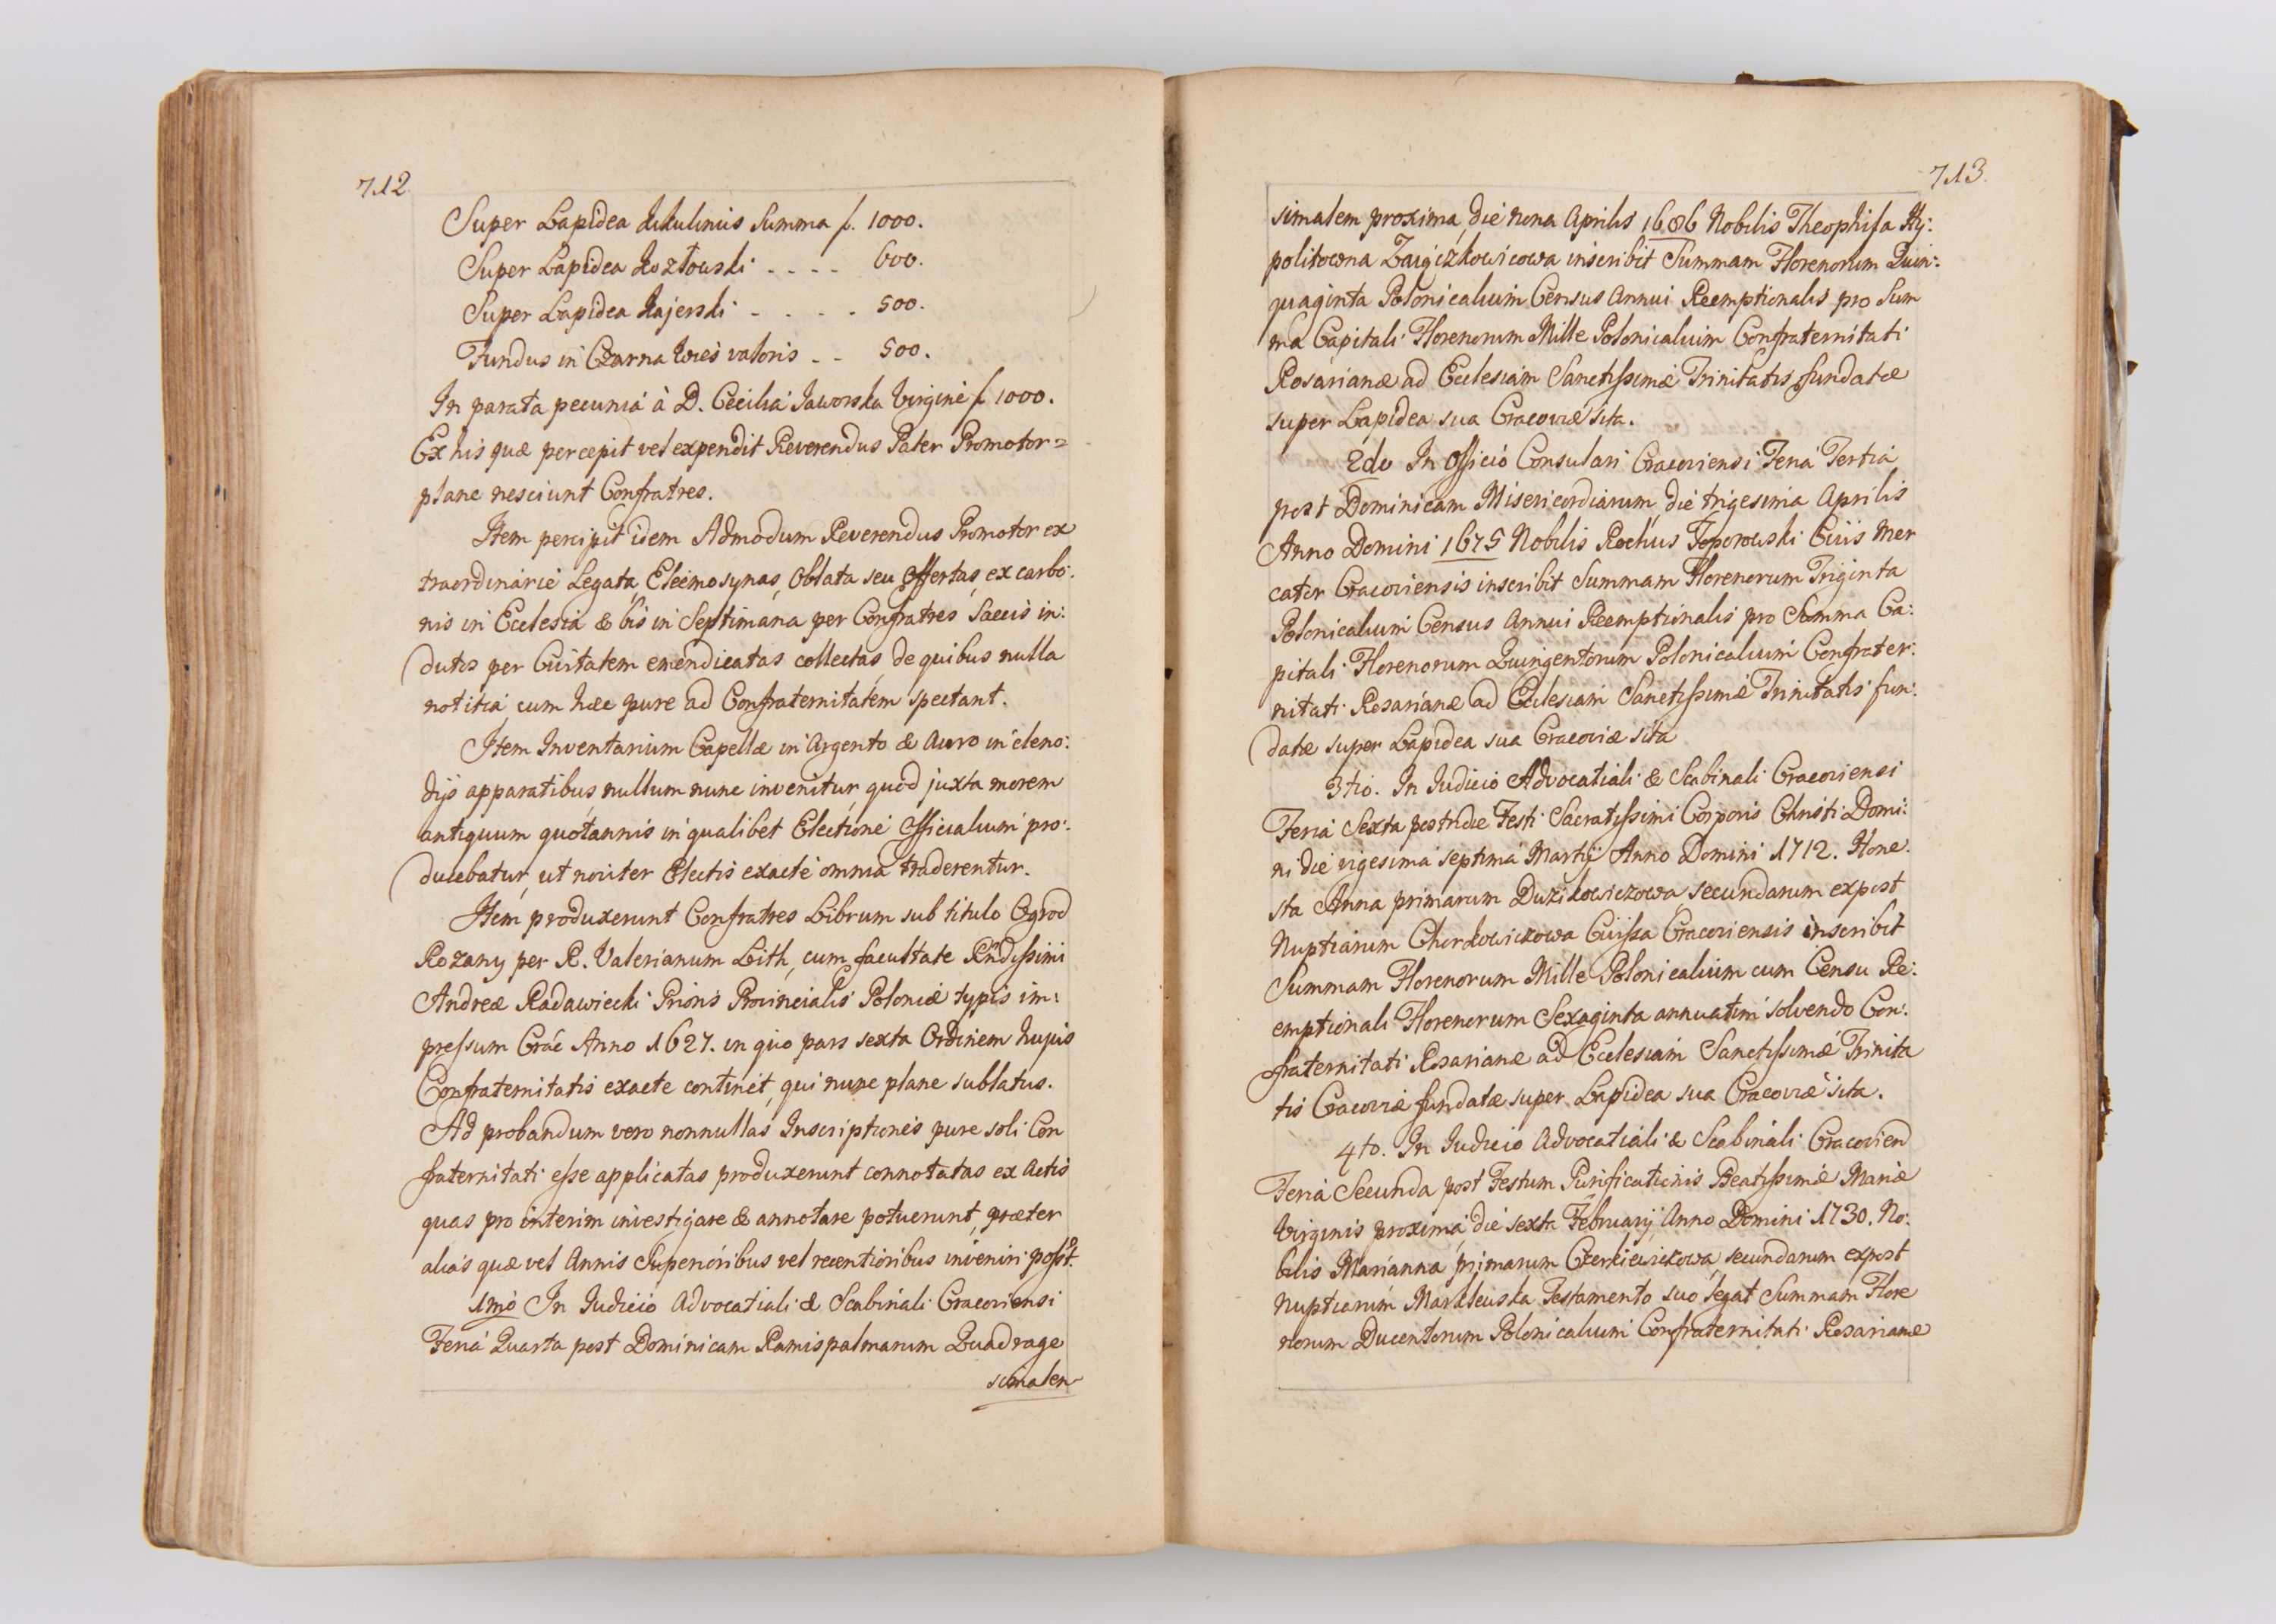 712
Super Lapidea Kikulinus Summa f. 1000.
Super Lapidea Kozłowski - - - - 600.
Super Lapidea Kajerski - - - - 500.
Fundus in Czarna Wies valoris - - 500.
In parata pecunia à D. Cecilia Jaworska Virgine f. 1000.
Ex his quæ percepit vel expendit Reverendus Pater Promotor =
plane nesciunt Confratres.
Item percipit idem Admodum Reverendus Promotor ex
traordinarie Legata, Eleemosynas, Oblata seu Offertas, ex carbo:
nis in Ecclesia & bis in Septimana per Confratres Saccis in:
dutos per Civitatem emendicatas collectas, de quibus nulla
notitia, cum hæc pure ad Confraternitatem spectant.
Item Inventarium Capellæ in Argento & Auro in cleno:
dijs apparatibus, nullum nunc invenitur, quod juxta morem
antiquum quotannis in qualibet Electione Officialium pro:
ducebatur, ut noviter Electis exacte omnia traderentur.
Item produxerunt Confratres Librum sub titulo Ogrod
Rozany per R. Valerianum Lith, cum facultate Rndissimi
Andreæ Radawiecki Prioris Provincialis Poloniæ typis im:
pressum Crac Anno 1627. in quo pars sexta Ordinem hujus
Confraternitatis exacte continet, qui nunc plane sublatus.
Ad probandum vero nonnullas Inscriptiones pure soli Con
fraternitati esse applicatas produxerunt connotatas ex Actis
quas pro interim investigare & annotare potuerunt, præter
alias quæ vel Annis Superioribus vel recentioribus inveniri posst.
1mo In Judicio Advocatiali & Scabinali Cracoviensi
Feria Quarta post Dominicam Ramispalmarum Quadrage
simalem
713.
simalem proxima, die nona Aprilis 1686 Nobilis Theophila Hy:
politowna Zaigiczkowicowa inscribit Summam Florenorum Quin:
quaginta Polonicalium Census Annui Reemptionalis pro Sum
ma Capitali Florenorum Mille Polonicalium Confraternitati
Rosarianæ ad Ecclesiam Sanctissimæ Trinitatis fundatæ
super Lapidea sua Cracoviæ sita.
2do In Officio Consulari Cracoviensi Feria Tertia
post Dominicam Misericordiarum, die trigesima Aprilis
Anno Domini 1675 Nobilis Rochus Toporowski Civis Mer
cator Cracoviensis inscribit Summam Florenorum Triginta
Polonicalium Census Annui Reemptionalis pro Summa Ca:
pitali Florenorum Quingentorum Polonicalium Confrater:
nitati Rosarianæ ad Ecclesiam Sanctissimæ Trinitatis fun:
datæ super Lapidea sua Cracoviæ sita
3tio. In Judicio Advocatiali & Scabinali Cracoviensi
Feria Sexta postridie Festi Sacratissimi Corporis Christi Domi:
ni die vigesima septima Martij Anno Domini 1712. Hone:
sta Anna primarum Duzikowiczowa, secundarum expost
Nuptiarum Chorkowiczowa Civissa Cracoviensis inscribit
Summam Florenorum Mille Polonicalium cum Censu Re:
emptionali Florenorum Sexaginta annuatim solvendo Con:
fraternitati Rosarianæ ad Ecclesiam Sanctissimæ Trinita
tis Cracoviæ fundatæ super Lapidea sua Cracoviæ sita.
4to. In Judicio Advocatiali & Scabinali Cracovien
Feria Secunda post Festum Purificationis Beatissimæ Mariæ
Virginis proxima, die sexta Februarij Anno Domini 1730. No:
bilis Marianna primarum Czerkiewiczowa, secundarum expost
Nuptiarum Marklewska Testamento suo legat Summam Flore
norum Ducentorum Polonicalium Confraternitati Rosarianæ